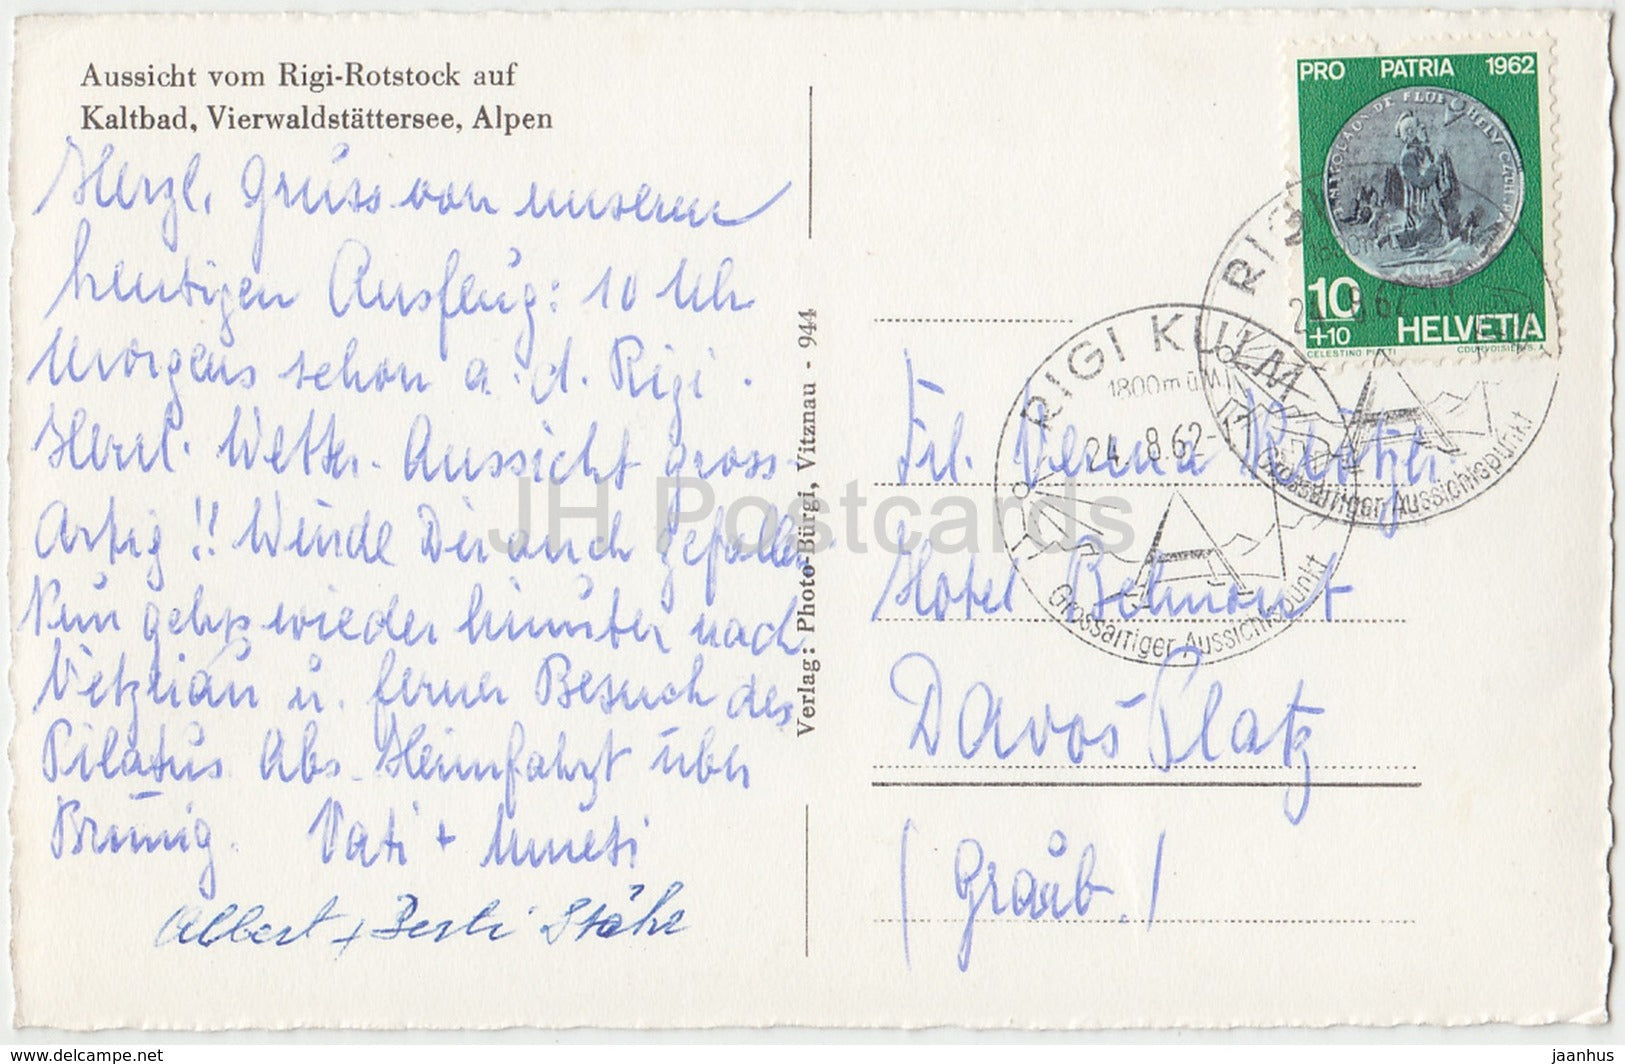 Aussicht vom Rigi-Rotstock auf
Kaltbad, Vierwaldstättersee, Alpen
Herzl. Grüss von unserem
heutigen Ausflug: 10 Uhr
Morgens schon a. d. Rigi.
Herrl. Wetter. Aussicht gross-
Artig!! Würde Dir auch gefallen
Nun gehts wieder hinunter nach
Vitznau u. ferner Besuch des
Pilatus Abs. Heimfahrt über
Brünig. Vati + Mueti
Albert + Berti Stähr
Verlag: Photo-Bürgi, Vitznau - 944
PRO PATRIA 1962
10
+10
HELVETIA
CELESTINO PIATTI
COURVOISIER S.A.
RIGI KULM
1800 m ü. M.
24. 8. 62-17
Grossartiger Aussichtspunkt
RIGI KULM
24. 8. 62-17
Grossartiger Aussichtspunkt
Frl. Verena
Hotel Belmont
Davos Platz
(Graub.)
JH Postcards
www.delcampe.net
jaanhus